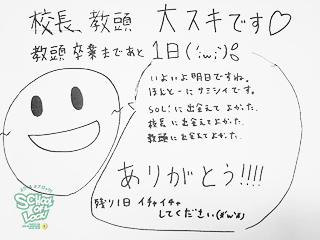 校長、教頭 大スキです♡
教頭 卒業まであと 1日(´;ω;`)
いよいよ明日ですね。
ほんとーにサミシイです。
SOL!に出会えてよかった。
校長に出会えてよかった。
教頭に出会えてよかった。
ありがとう!!!!
残り1日 イチャイチャ
してください(*´ω`*)
SCHOOL
OF
LOCK!